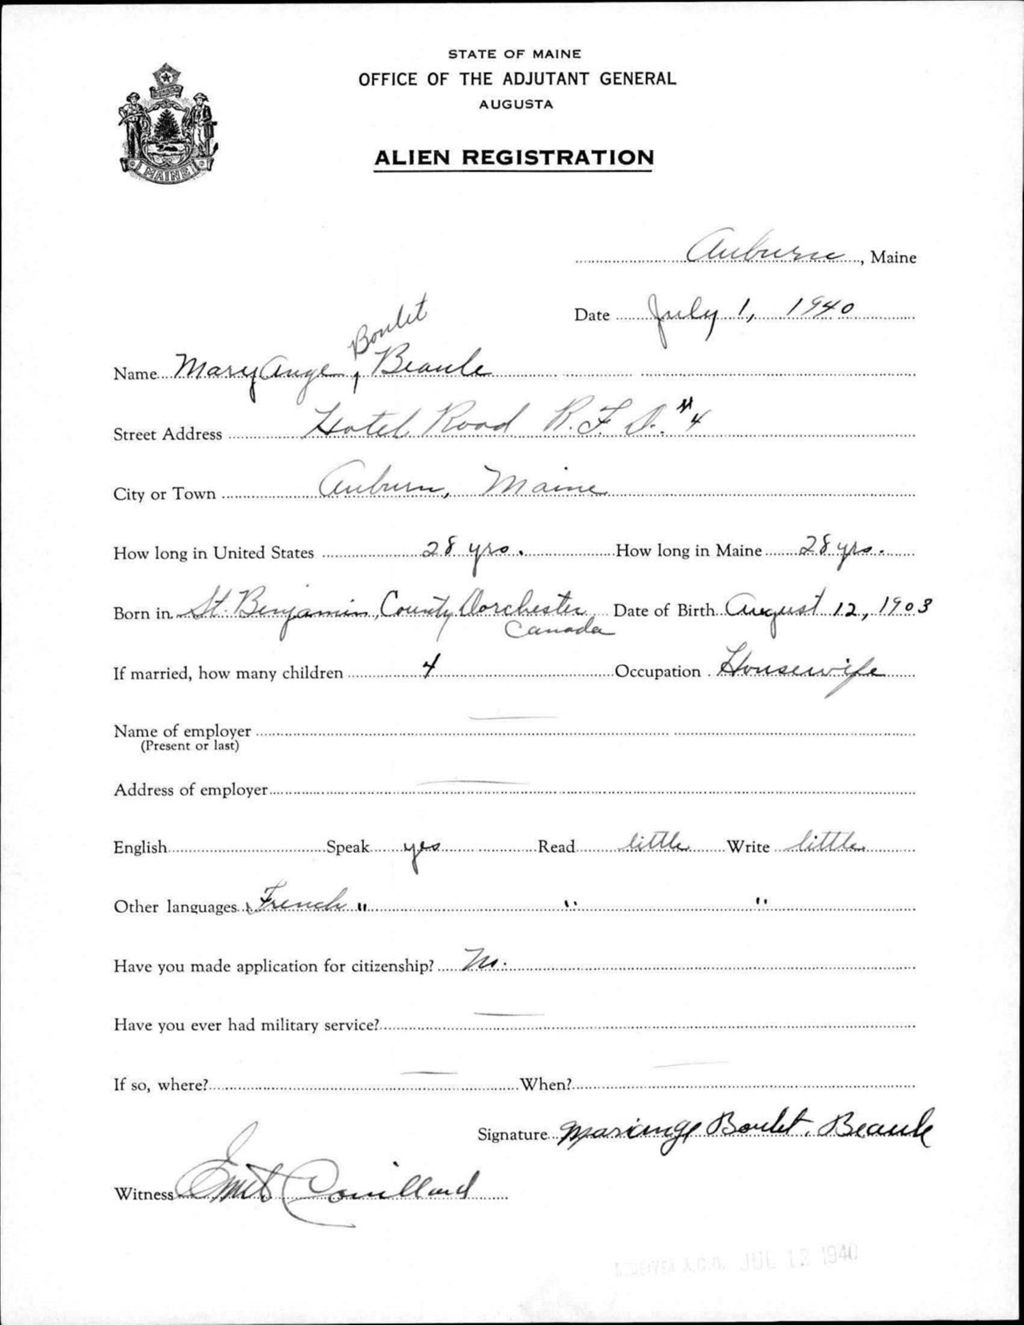 STATE OF MAINE
OFFICE OF THE ADJUTANT GENERAL
AUGUSTA
ALIEN REGISTRATION
MAINE
Auburn, Maine
Date July 1, 1940
Boulet
Name Mary Ange, Beaule
Street Address Hotel Road R.F.D. #4
City or Town Auburn, Maine
How long in United States 28 yrs. How long in Maine 28 yrs.
Born in St. Benjamin, County Dorchester Date of Birth August 12, 1903
Canada
If married, how many children 4 Occupation Housewife
Name of employer
(Present or last)
Address of employer
English Speak yes Read little Write little
Other languages French " " "
Have you made application for citizenship? No.
Have you ever had military service?
If so, where? When?
Signature Mariange Boulet. Beaule
Witness Couillard
JUL 12 1940